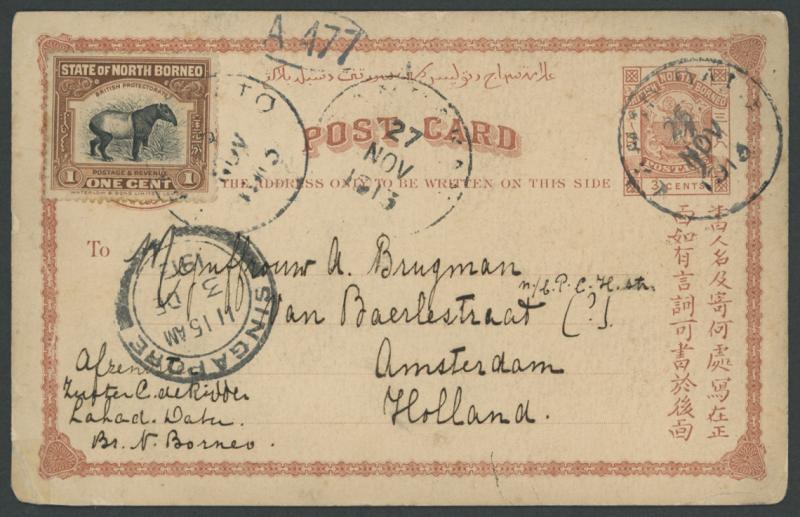 A 477
STATE OF NORTH BORNEO
BRITISH PROTECTORATE
POSTAGE & REVENUE
1 ONE CENT 1
WATERLOW & SONS LIMITED
NOV
27
NOV
1913
BRITISH NORTH BORNEO
POSTAGE
3 CENTS
26
NOV
1913
POST CARD
THE ADDRESS ONLY TO BE WRITTEN ON THIS SIDE
To Mejuffrouw A. Brugman
n/b. P. C. H. str.
Van Baerlestraat (?).
Amsterdam
Holland.
SINGAPORE
11 15 AM
3
DE
Afzend.
Zuster C. de Ridder
Lahad. Datu
Br. N. Borneo.
人名及寄何處寫在正
面如有言詞可書於後面